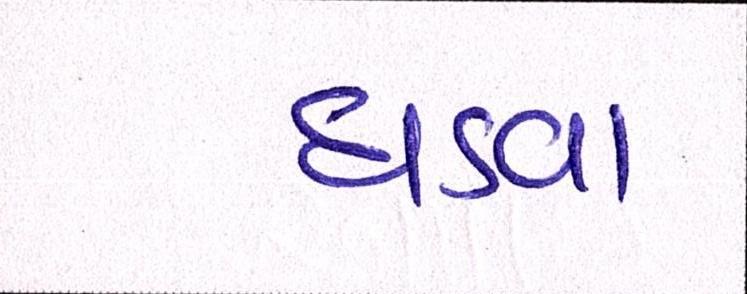 ઘડવા